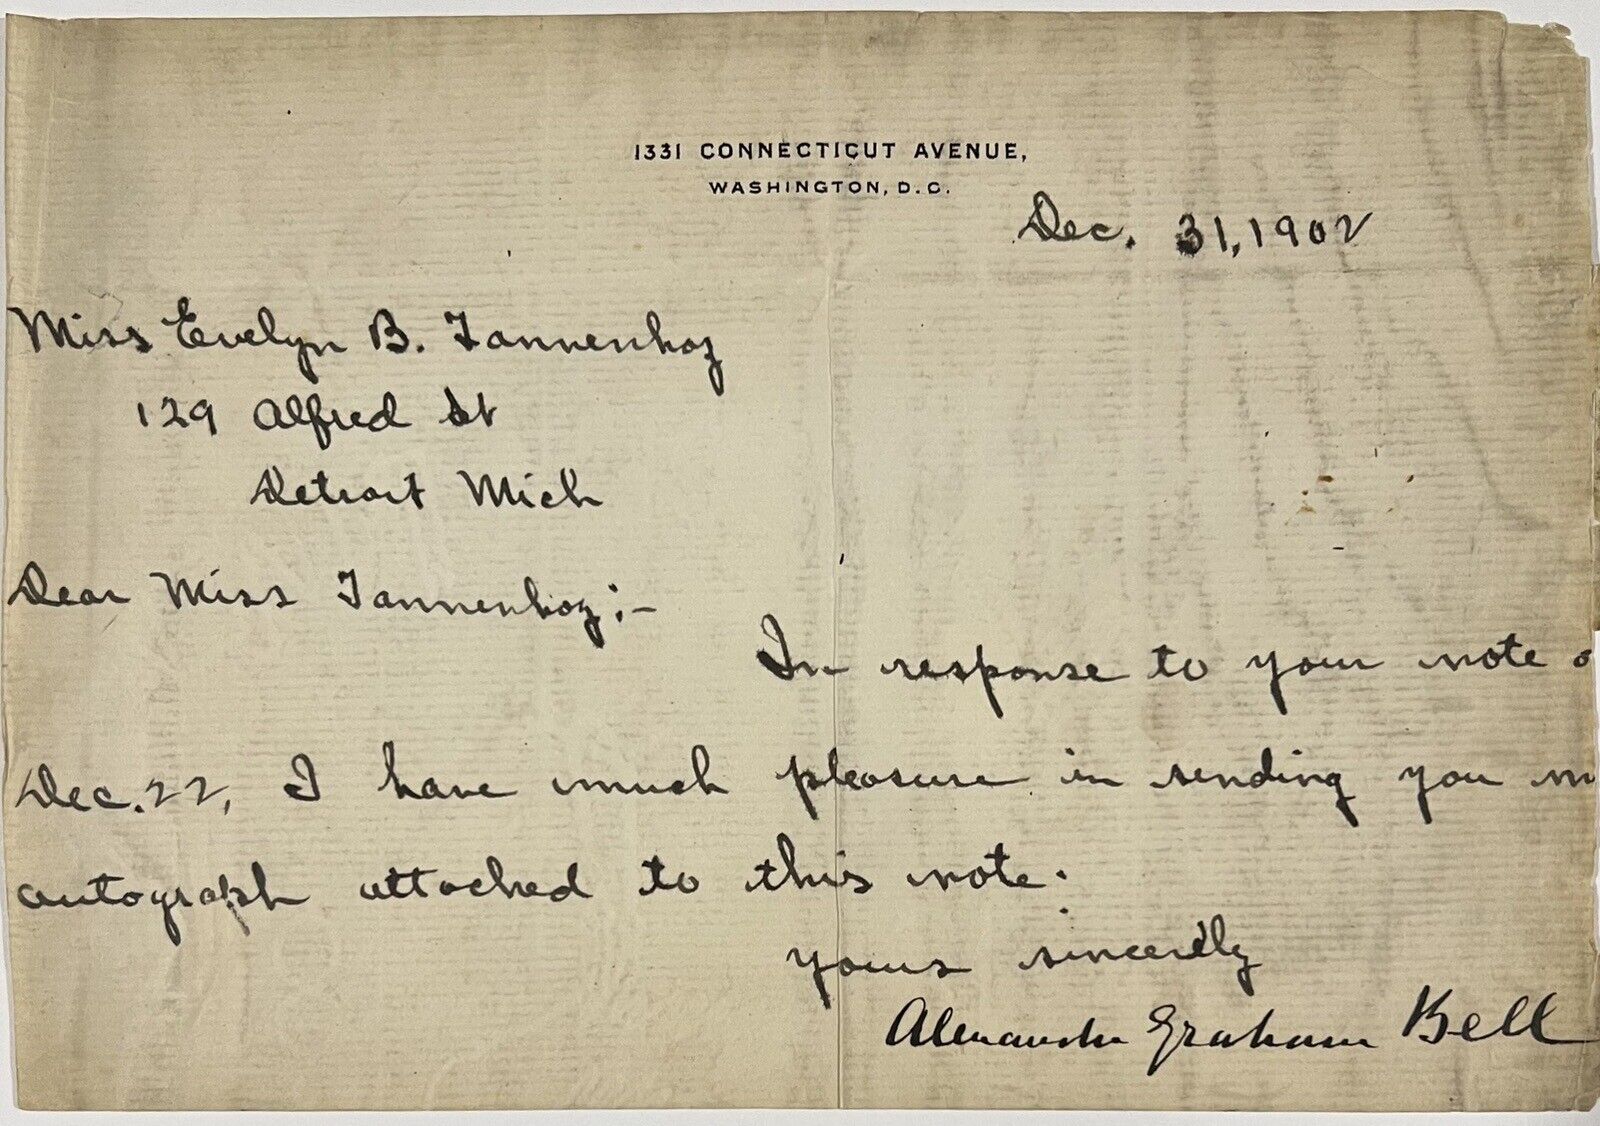 1331 CONNECTICUT AVENUE,
WASHINGTON, D.C.
Dec. 31, 1902
Miss Evelyn B. Tannenhoz
129 Alfred St
Detroit Mich
Dear Miss Tannenhoz:-
In response to your note o
Dec. 22, I have much pleasure in sending you m
autograph attached to this note.
yours sincerely
Alexander Graham Bell